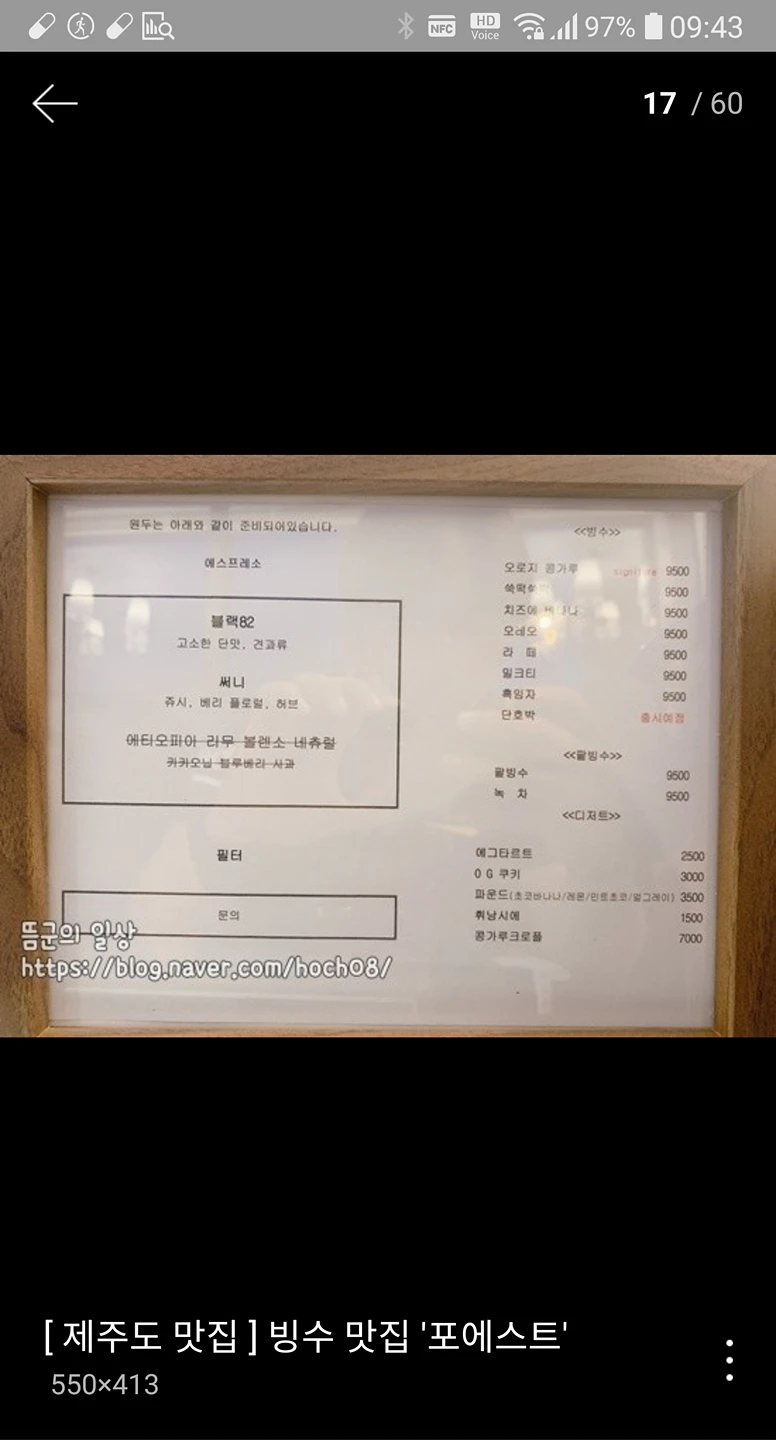 HD
Voice
NFC
97%
09:43
17 / 60
원두는 아래와 같이 준비되어있습니다.
에스프레소
블랙82
고소한 단맛, 견과류
써니
쥬시, 베리 플로럴, 허브
에티오피아 리무 볼렌소 네츄럴
카카오닙 블루베리 사과
필터
문의
<<빙수>>
오로지 콩가루 9500
쑥떡쑥 9500
치즈에 바나나 9500
오레오 9500
라 떼 9500
밀크티 9500
흑임자 9500
단호박 출시예정
<<팥빙수>>
팥빙수 9500
녹 차 9500
<<디저트>>
에그타르트 2500
O G 쿠키 3000
파운드(초코바나나/레몬/민트초코/얼그레이) 3500
휘낭시에 1500
콩가루크로플 7000
뜸군의 일상
https://blog.naver.com/hoch08/
[ 제주도 맛집 ] 빙수 맛집 '포에스트'
550×413